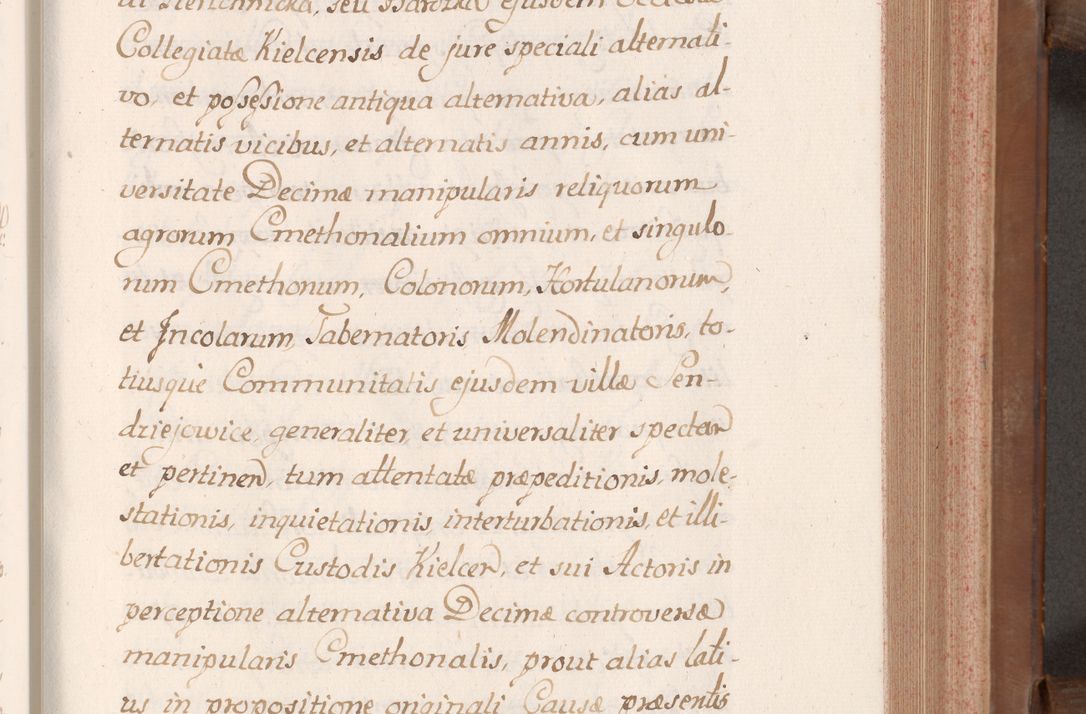 seu ejusdem Ecclesiæ
Collegiatæ Kielcensis de jure speciali alternati-
vo, et possessione antiqua alternativa, alias al-
ternatis vicibus, et alternatis annis, cum uni-
versitate Decimæ manipularis reliquorum
agrorum Cmethonalium omnium, et singulo-
rum Cmethonum, Colonorum, Hortulanorum,
et Incolarum, Tabernatoris Molendinatoris, to-
tiusque Communitatis ejusdem villæ Sen-
dziejowice, generaliter, et universaliter spectan
et pertinen, tum attentatæ præpeditionis, mole-
stationis, inquietationis, interturbationis, et illi-
bertationis Custodis Kielcen, et sui Actoris in
perceptione alternativa Decimæ controversæ
manipularis Cmethonalis, prout alias lati-
us in propositione originali Causæ præsentis